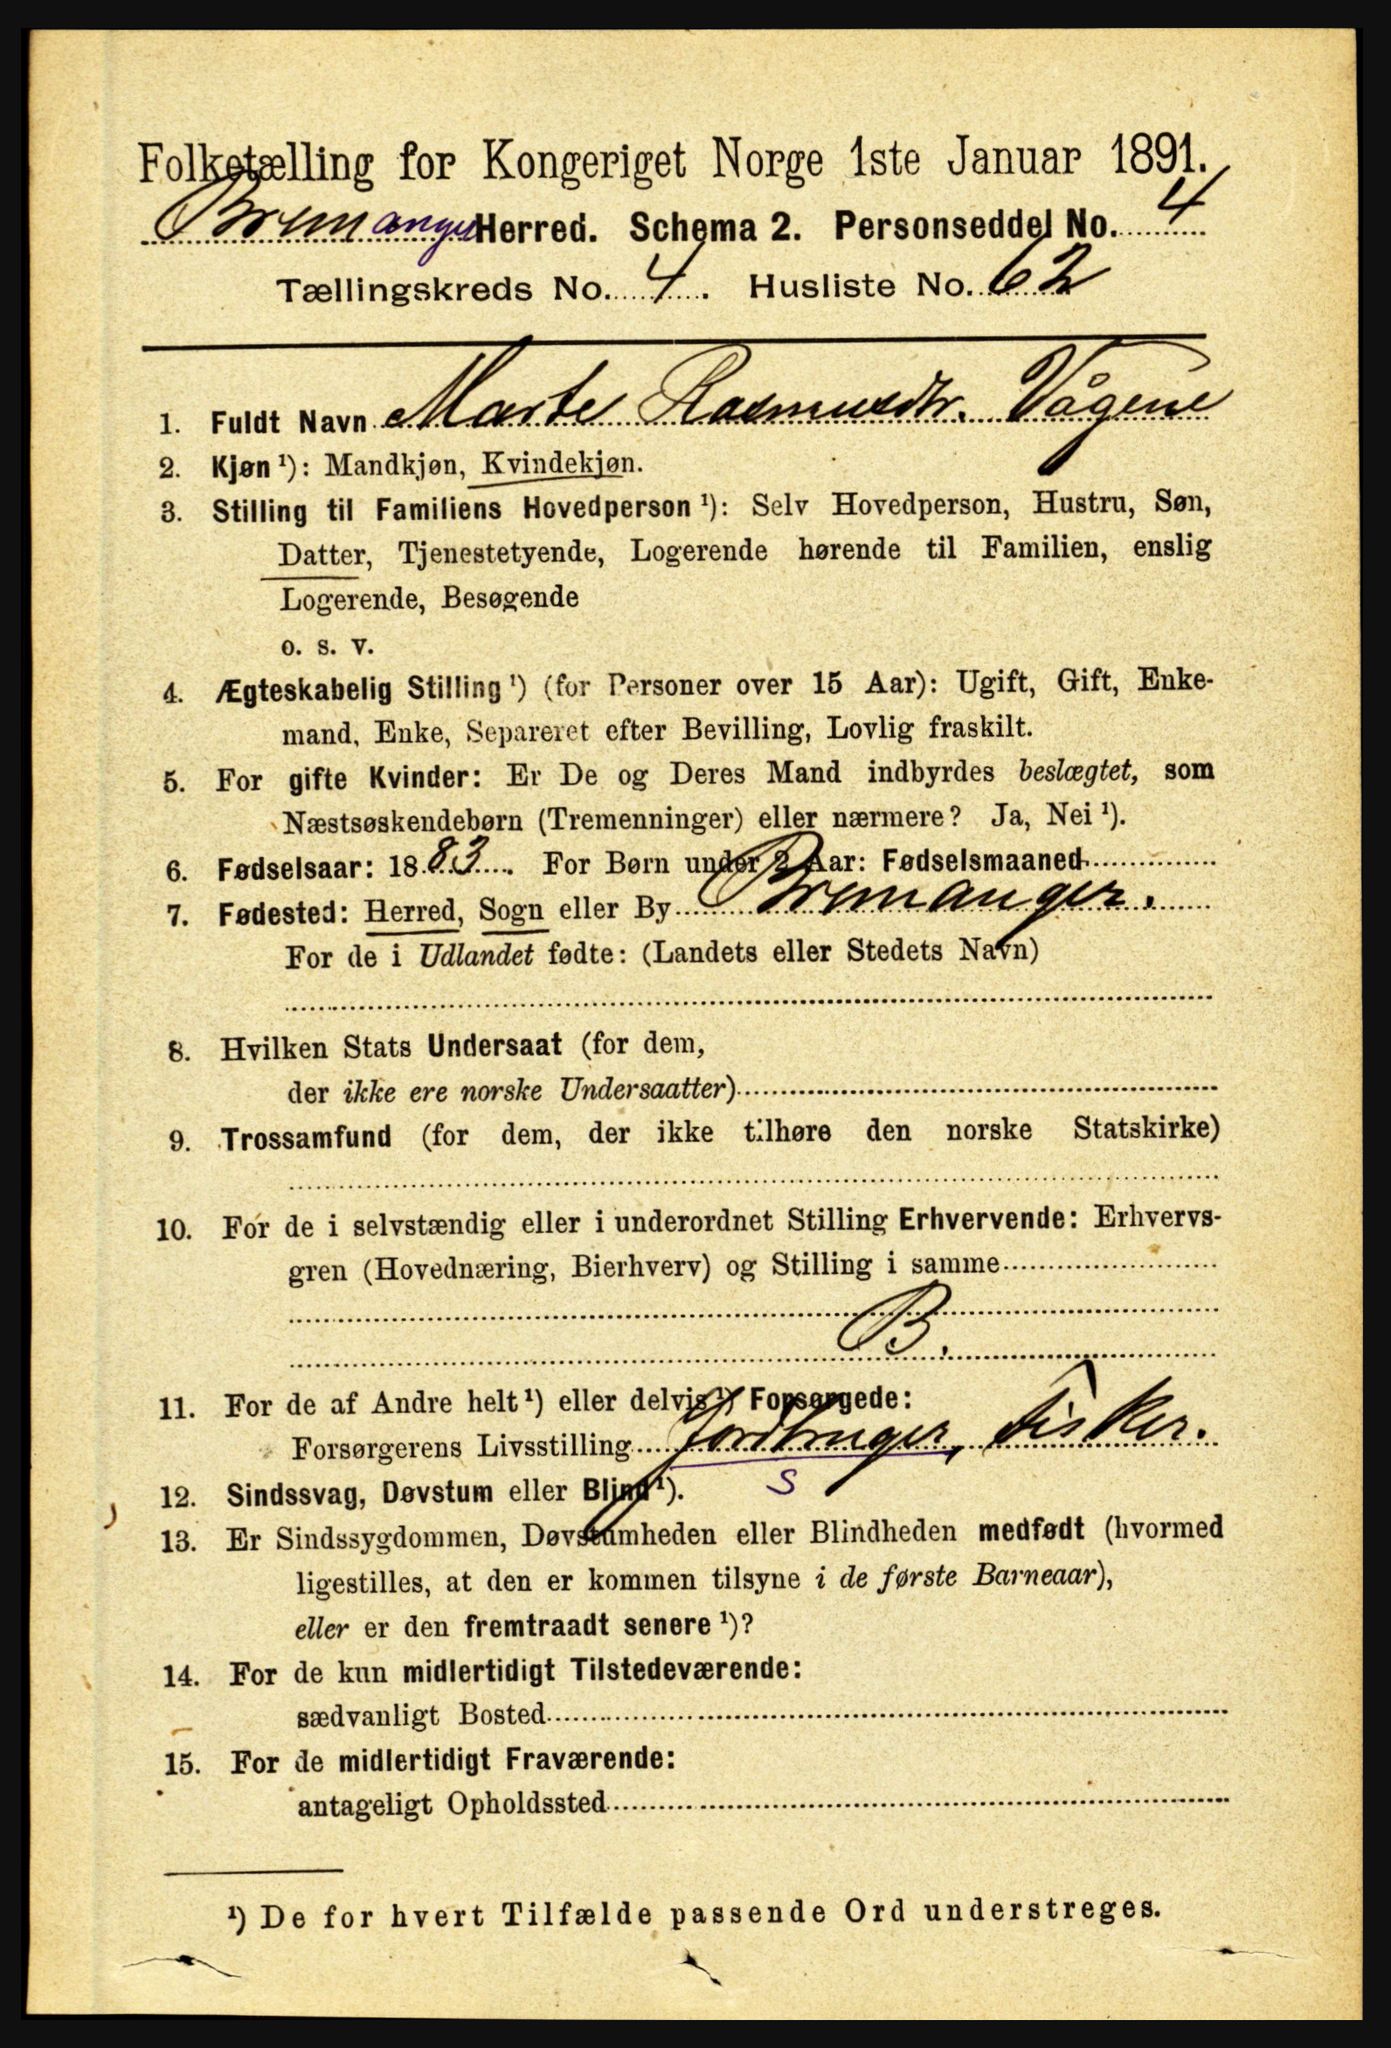 Folketælling for Kongeriget Norge 1ste Januar 1891.
Bremanger Herred. Schema 2. Personseddel No. 4
Tællingskreds No. 4. Husliste No. 62
1. Fuldt Navn Marte Rasmusdtr. Vågene
2. Kjøn ¹): Mandkjøn, Kvindekjøn.
3. Stilling til Familiens Hovedperson ¹): Selv Hovedperson, Hustru, Søn,
Datter, Tjenestetyende, Logerende hørende til Familien, enslig
Logerende, Besøgende
o. s. v.
4. Ægteskabelig Stilling ¹) (for Personer over 15 Aar): Ugift, Gift, Enke-
mand, Enke, Separeret efter Bevilling, Lovlig fraskilt.
5. For gifte Kvinder: Er De og Deres Mand indbyrdes beslægtet, som
Næstsøskendebørn (Tremenninger) eller nærmere? Ja, Nei ¹).
6. Fødselsaar: 1883. For Børn under 2 Aar: Fødselsmaaned
7. Fødested: Herred, Sogn eller By Bremanger.
For de i Udlandet fødte: (Landets eller Stedets Navn)
8. Hvilken Stats Undersaat (for dem,
der ikke ere norske Undersaatter)
9. Trossamfund (for dem, der ikke tilhøre den norske Statskirke)
10. For de i selvstændig eller i underordnet Stilling Erhvervende: Erhvervs-
gren (Hovednæring, Bierhverv) og Stilling i samme
B.
11. For de af Andre helt ¹) eller delvis ¹) Forsørgede:
Forsørgerens Livsstilling Jordbruger, Fisker.
S
12. Sindssvag, Døvstum eller Blind ¹).
13. Er Sindssygdommen, Døvstumheden eller Blindheden medfødt (hvormed
ligestilles, at den er kommen tilsyne i de første Barneaar),
eller er den fremtraadt senere ¹)?
14. For de kun midlertidigt Tilstedeværende:
sædvanligt Bosted
15. For de midlertidigt Fraværende:
antageligt Opholdssted
¹) De for hvert Tilfælde passende Ord understreges.